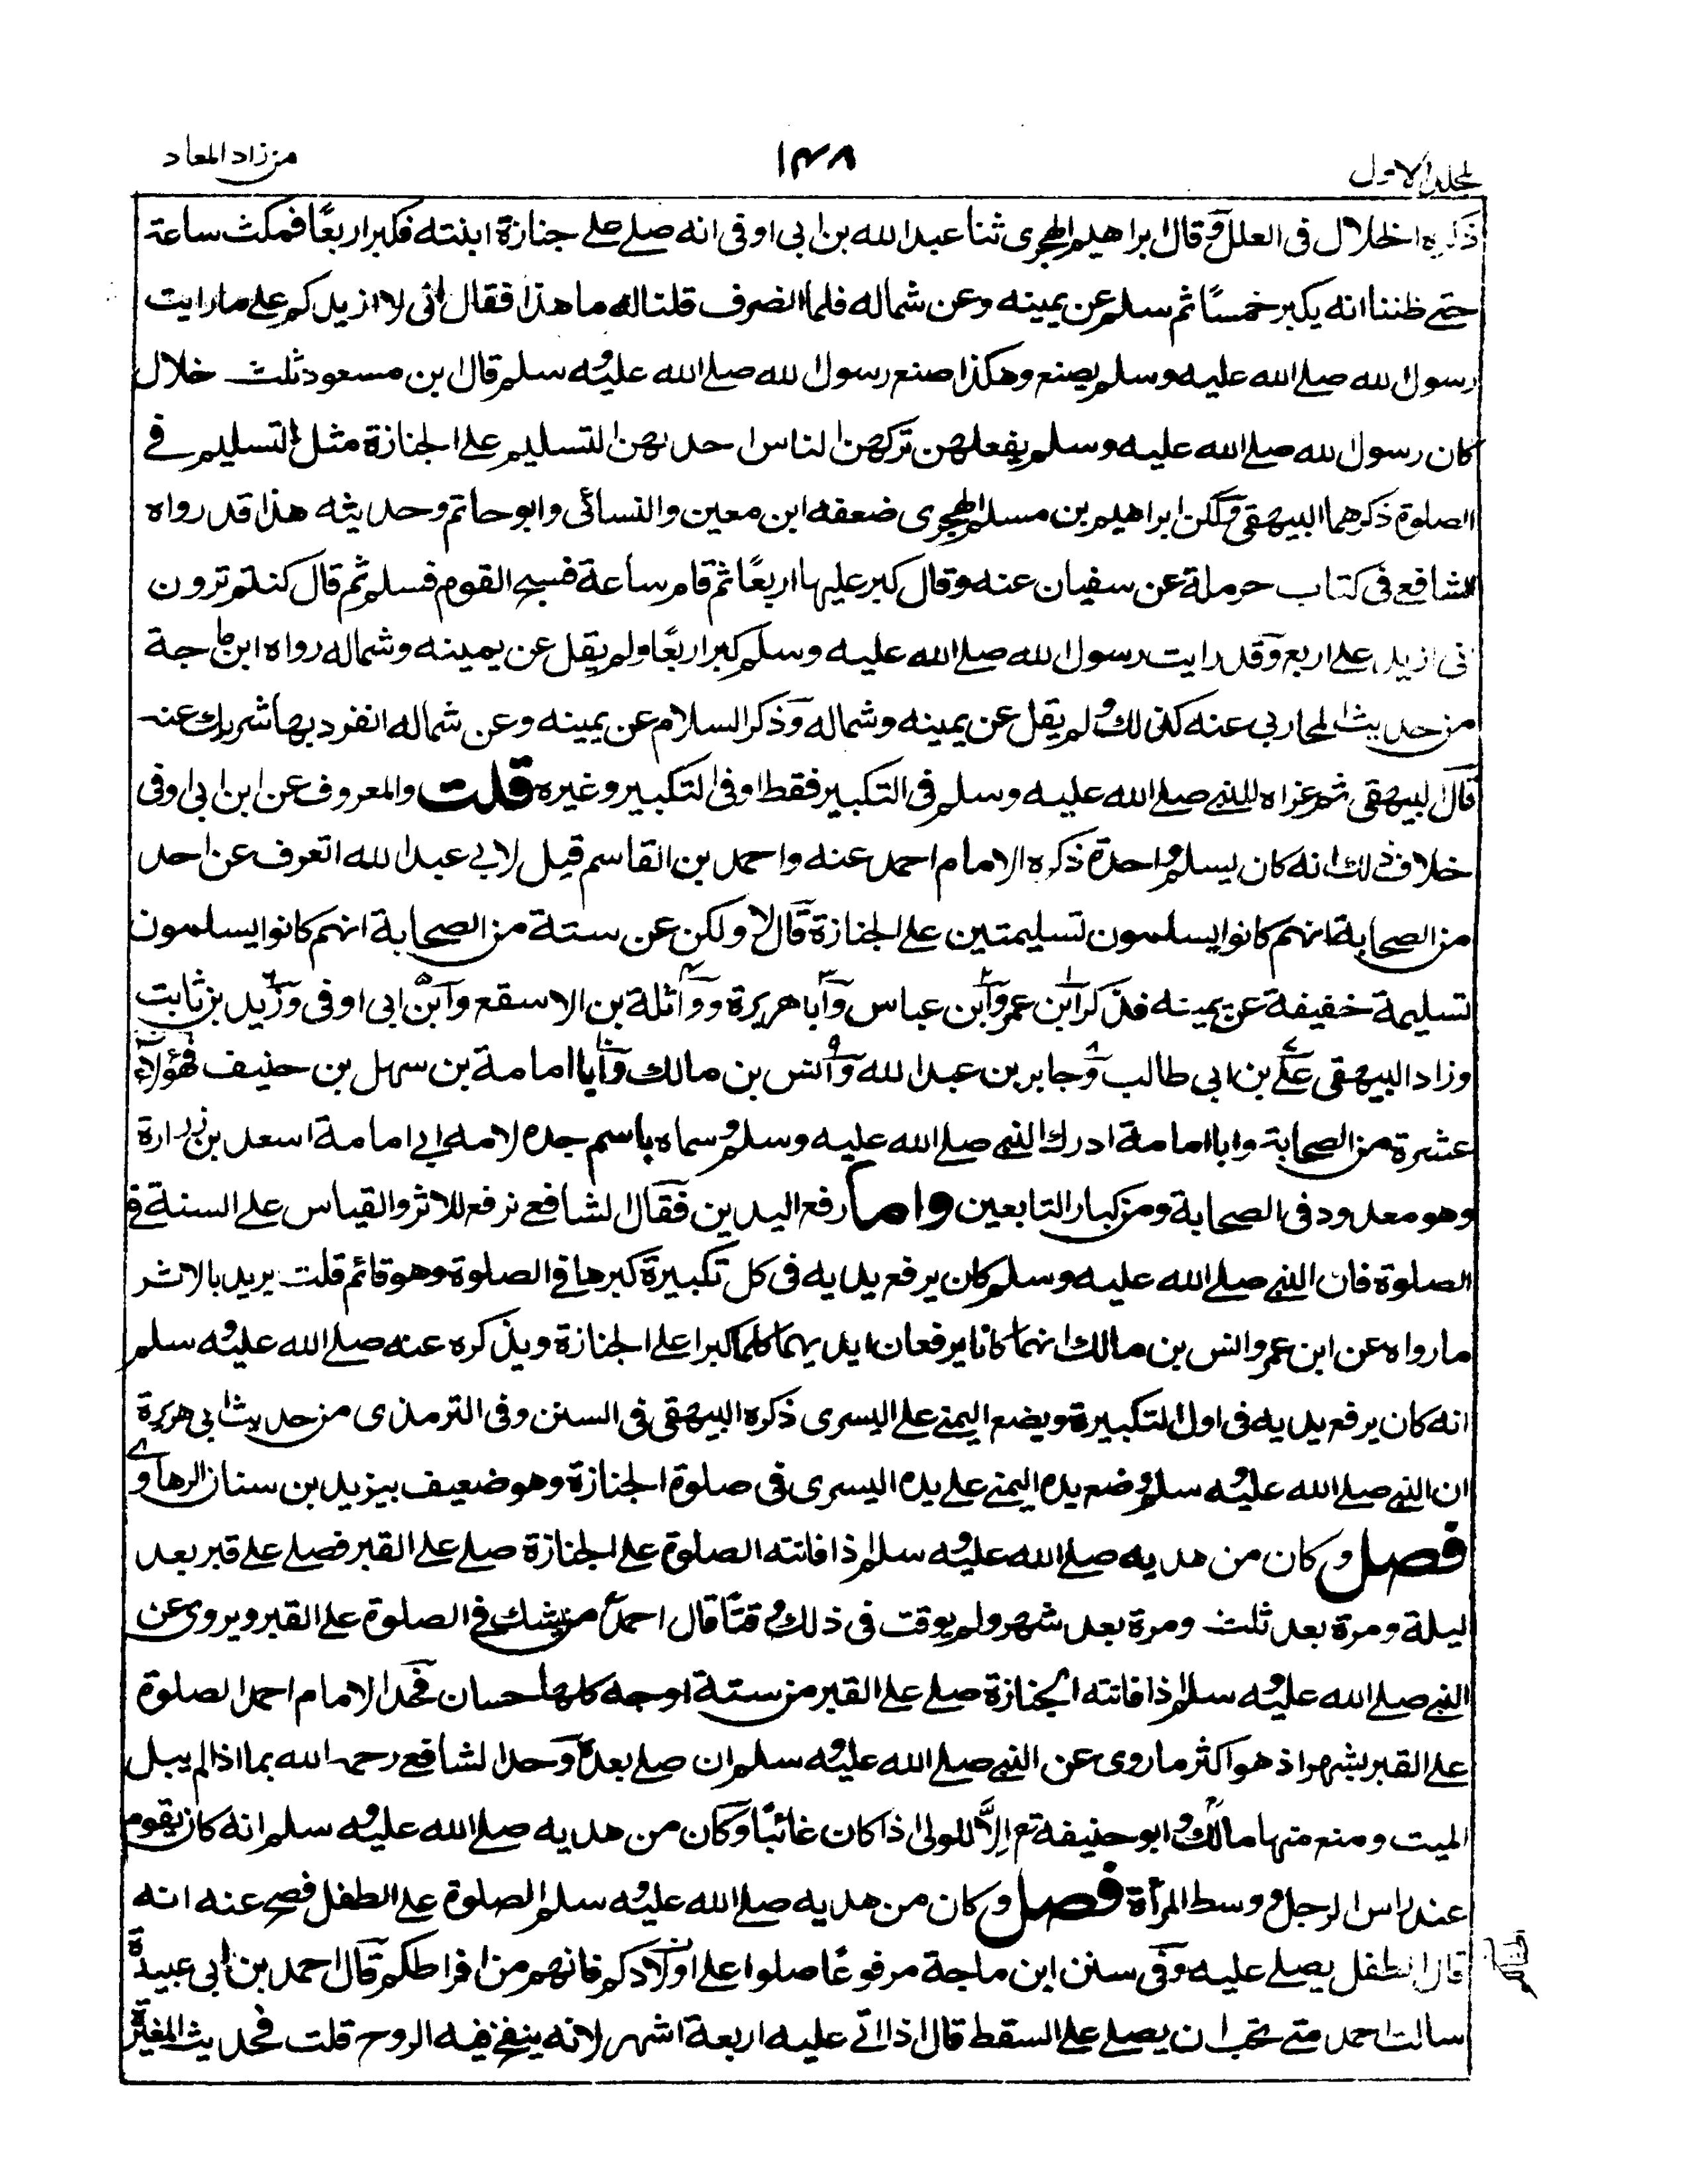 المجلد الاول
١٤٨
من زاد المعاد
ذكره الخلال فى العلل وقال ابراهيم الهجرى ثنا عبد الله بن ابى اوفى انه صلے علے جنازة ابنته فكبر اربعًا فمكث ساعة
حتے ظننا انه يكبر خمسًا ثم سلم عن يمينه وعن شماله فلما انصرف قلنا له ما هذا فقال انى لا ازيدكم علے ما رايت
رسول الله صلے الله عليه وسلم يصنع وهكذا صنع رسول الله صلے الله عليه وسلم قال ابن مسعود ثلث خلال
كان رسول الله صلے الله عليه وسلم يفعلهن تركهن الناس احدهن التسليم علے الجنازة مثل التسليم فے
الصلوة ذكرهما البيهقى ولكن ابراهيم بن مسلم الهجرى ضعفه ابن معين والنسائى وابو حاتم وحديثه هذا قد رواه
الشافعے فى كتاب حرملة عن سفيان عنه وقال كبر عليها اربعًا ثم قام ساعة فسبح القوم فسلم ثم قال كنتم ترون
انى ازيد علے اربع وقد رايت رسول الله صلے الله عليه وسلم كبر اربعًا ولم يقل عن يمينه وشماله رواه ابن ماجة
من حديث المحاربى عنه كذلك ولم يقل عن يمينه وشماله وذكر السلام عن يمينه وعن شماله انفرد بها شريك عنه
قال البيهقى ثم عزاه للنبے صلے الله عليه وسلم فى التكبير فقط او فى التكبير وغيره قلت والمعروف عن ابن ابى اوفى
خلاف ذلك انه كان يسلم واحدة ذكره الامام احمد عنه واحمد بن القاسم قيل لابى عبد الله اتعرف عن احد
من الصحابة انهم كانوا يسلمون تسليمتين علے الجنازة قال لا ولكن عن ستة من الصحابة انهم كانوا يسلمون
تسليمة خفيفة عن يمينه فذكر ابن عمر وابن عباس وابا هريرة وواثلة بن الاسقع وابن ابى اوفى وزيد بن ثابت
وزاد البيهقى علے بن ابى طالب وجابر بن عبد الله وانس بن مالك وابا امامة بن سهل بن حنيف فهؤلاء
عشرة من الصحابة وابا امامة ادرك النبے صلے الله عليه وسلم وسماه باسم جده لامه ابى امامة اسعد بن زرارة
وهو معدود فى الصحابة ومن كبار التابعين واما رفع اليدين فقال الشافعے نرفع للاثر والقياس علے السنة فى
الصلوة فان النبے صلے الله عليه وسلم كان يرفع يديه فى كل تكبيرة كبرها فى الصلوة وهو قائم قلت يريد بالاثر
ما رواه عن ابن عمر وانس بن مالك انهما كانا يرفعان ايديهما كلما كبرا علے الجنازة ويذكره عنه صلے الله عليه وسلم
انه كان يرفع يديه فى اول التكبيرة ويضع اليمنے علے اليسرى ذكره البيهقى فى السنن وفى الترمذى من حديث ابى هريرة
ان النبے صلے الله عليه وسلم وضع يده اليمنے علے يده اليسرى فى صلوة الجنازة وهو ضعيف بيزيد بن سنان الرهاوے
فصل وكان من هديه صلے الله عليه وسلم اذا فاتته الصلوة علے الجنازة صلے علے القبر فصلے علے قبر بعد
ليلة ومرة بعد ثلث ومرة بعد شهر ولم يوقت فى ذلك وقتًا قال احمد من يشك فى الصلوة علے القبر ويروى عن
النبے صلے الله عليه وسلم اذا فاتته الجنازة صلے علے القبر من ستة اوجه كلها حسان فحد الامام احمد الصلوة
علے القبر بشهر اذ هو اكثر ما روى عن النبے صلے الله عليه وسلم ان صلے بعده وحد الشافعے رحمه الله بما اذا لم يبل
الميت ومنع منها مالك وابو حنيفة الا للولى اذا كان غائبًا وكان من هديه صلے الله عليه وسلم انه كان يقوم
عند راس الرجل ووسط المرأة فصل وكان من هديه صلے الله عليه وسلم الصلوة علے الطفل فصح عنه انه
قال الطفل يصلے عليه وفى سنن ابن ماجة مرفوعًا صلوا علے اولادكم فانهم من افراطكم قال احمد بن ابى عبيدة
سالت احمد متے يجب ان يصلے علے السقط قال اذا اتے عليه اربعة اشهر لانه ينفخ فيه الروح قلت فحديث المغيرة